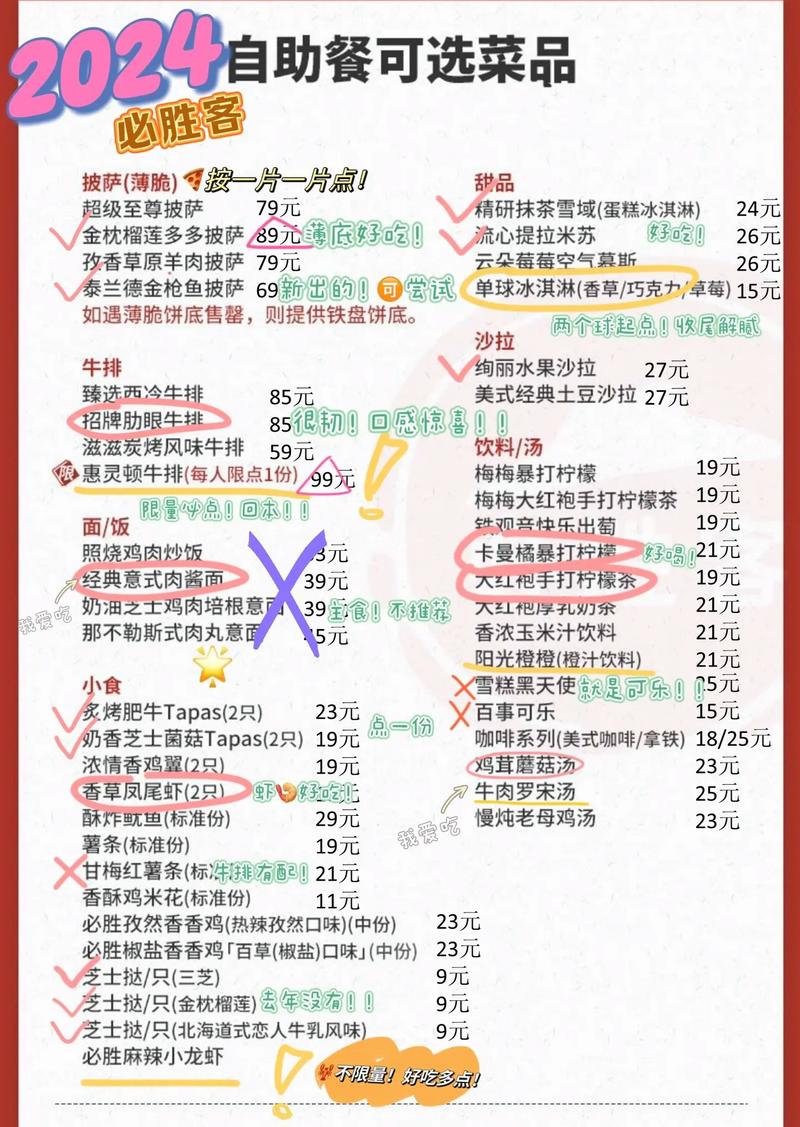 2024
必胜客
自助餐可选菜品
披萨(薄脆) 按一片一片点！
超级至尊披萨 79元
金枕榴莲多多披萨 89元 薄底好吃！
孜香草原羊肉披萨 79元
泰兰德金枪鱼披萨 69 新出的！可尝试
如遇薄脆饼底售罄，则提供铁盘饼底。
牛排
臻选西冷牛排 85元
招牌肋眼牛排 85 很韧！口感惊喜！！
滋滋炭烤风味牛排 59元
限 惠灵顿牛排(每人限点1份) 99元
限量必点！回本！！
面/饭
照烧鸡肉炒饭 3元
经典意式肉酱面 39元
我爱吃
奶油芝士鸡肉培根意面 39 主食！不推荐
那不勒斯式肉丸意面 45元
小食
炙烤肥牛Tapas(2只) 23元
奶香芝士菌菇Tapas(2只) 19元 点一份
浓情香鸡翼(2只) 19元
香草凤尾虾(2只) 虾好吃！
酥炸鱿鱼(标准份) 29元
薯条(标准份) 19元
甘梅红薯条(标 牛排有配！ 21元
香酥鸡米花(标准份) 11元
必胜孜然香香鸡(热辣孜然口味)(中份) 23元
必胜椒盐香香鸡「百草(椒盐)口味」(中份) 23元
芝士挞/只(三芝) 9元
芝士挞/只(金枕榴莲) 去年没有！！ 9元
芝士挞/只(北海道式恋人牛乳风味) 9元
必胜麻辣小龙虾
不限量！好吃多点！
甜品
精研抹茶雪域(蛋糕冰淇淋) 24元
流心提拉米苏 好吃！ 26元
云朵莓莓空气慕斯 26元
单球冰淇淋(香草/巧克力/草莓) 15元
两个球起点！收尾解腻
沙拉
绚丽水果沙拉 27元
美式经典土豆沙拉 27元
饮料/汤
梅梅暴打柠檬 19元
梅梅大红袍手打柠檬茶 19元
铁观音快乐出萄 19元
卡曼橘暴打柠檬 好喝！ 21元
大红袍手打柠檬茶 19元
大红袍厚乳奶茶 21元
香浓玉米汁饮料 21元
阳光橙橙(橙汁饮料) 21元
雪糕黑天使 就是可乐！！ 25元
百事可乐 15元
咖啡系列(美式咖啡/拿铁) 18/25元
鸡茸蘑菇汤 23元
牛肉罗宋汤 25元
我爱吃
慢炖老母鸡汤 23元